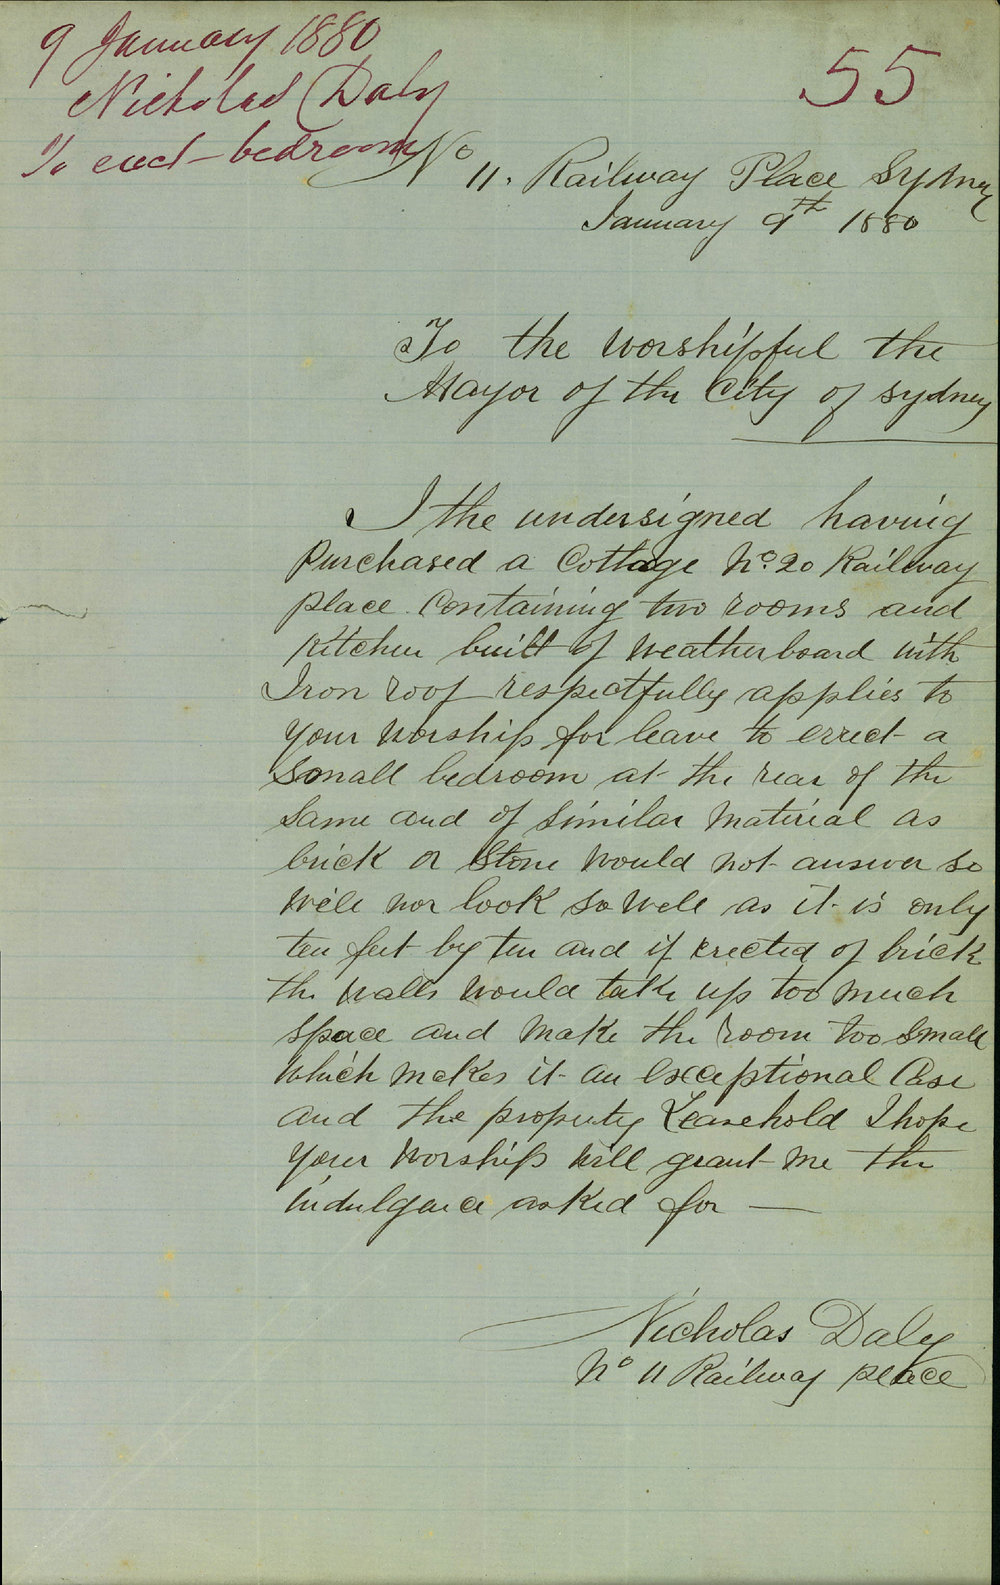 9 January 1880
Nicholas Daly
To erect bedroom
55
No 11. Railway Place Sydney
January 9th 1880
To the Worshipful the
Mayor of the City of Sydney
I the undersigned having
Purchased a Cottage No. 20 Railway
place. Containing two rooms and
Kitchen built of Weatherboard with
Iron roof respectfully applies to
your Worship for leave to errect a
Small bedroom at the rear of the
Same and of Similar Material as
brick or Stone would not answer so
Well nor look so well as it is only
ten feet by ten and if erected of brick
the Walls would take up too much
space and make the room too Small
Which makes it an exceptional Case
and the property Leasehold I hope
Your Worship will grant me the
indulgence asked for —
Nicholas Daly
No 11 Railway place